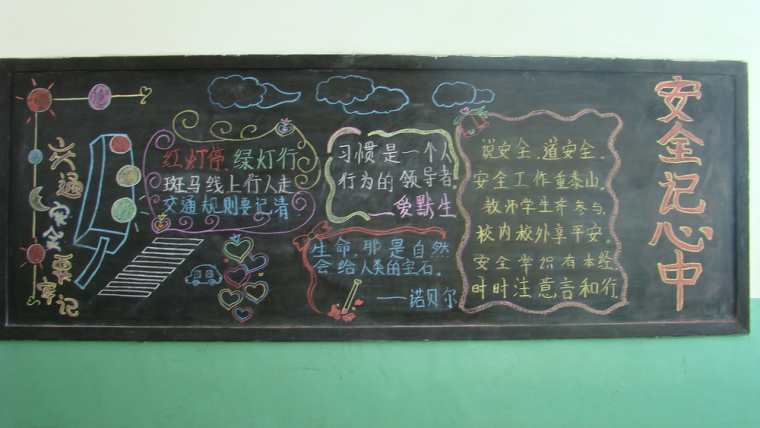 交通安全要牢记
红灯停 绿灯行
斑马线上行人走
交通规则要记清
习惯是一个人
行为的领导者
——爱默生
生命，那是自然
会给人类的宝石。
——诺贝尔
说安全，道安全。
安全工作重泰山。
教师学生齐参与。
校内校外享平安。
安全常识有本经
时时注意言和行
安全记心中